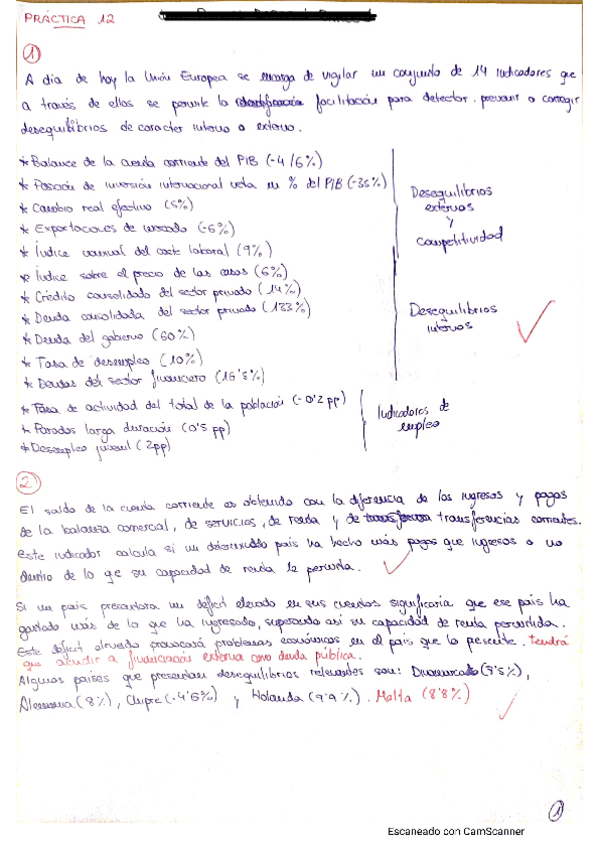 PRÁCTICA 12
1
A día de hoy la Unión Europea se encarga de vigilar un conjunto de 14 indicadores que
a través de ellos se permite la facilitación para detectar, prevenir o corregir
desequilibrios de caracter interno o externo.
* Balance de la cuenta corriente del PIB (-4/6%)
* Posición de inversión internacional neta en % del PIB (-35%)
* Cambio real efectivo (5%)
* Exportaciones de mercado (-6%)
* Índice nominal del coste laboral (9%)
Desequilibrios
externos
y
competitividad
* Índice sobre el precio de las casas (6%)
* Crédito consolidado del sector privado (14%)
* Deuda consolidada del sector privado (133%)
* Deuda del gobierno (60%)
* Tasa de desempleo (10%)
* Deudas del sector financiero (16'5%)
Desequilibrios
internos
* Tasa de actividad del total de la población (-0'2 pp)
* Parados larga duración (0'5 pp)
* Desempleo juvenil (2pp)
Indicadores de
empleo
2
El saldo de la cuenta corriente es obtenido con la diferencia de los ingresos y pagos
de la balanza comercial, de servicios, de renta y de transferencias corrientes.
Este indicador calcula si un determinado país ha hecho más pagos que ingresos o no
dentro de lo que su capacidad de renta le permita.
Si un país presentara un déficit elevado en sus cuentas significaría que ese país ha
gastado más de lo que ha ingresado, superando así su capacidad de renta permitida.
Este déficit elevado provocará problemas económicos en el país que lo presente. tendrá
que acudir a financiación externa como deuda pública.
Algunos países que presentan desequilibrios relevantes son: Dinamarca
Alemania (8%), Chipre (-4'6%) y Holanda (9'9%). Malta (8'8%)
1
Escaneado con CamScanner